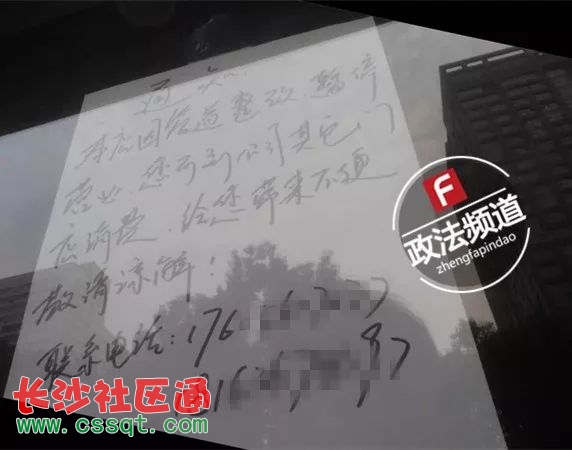 通知
本店因管道整改,暂停
营业,您可到公司其它门
店消费,给您带来不便
敬请谅解!
联系电话:176
87
F
政法频道
zhengfapindao
长沙社区通
www.cssqt.com